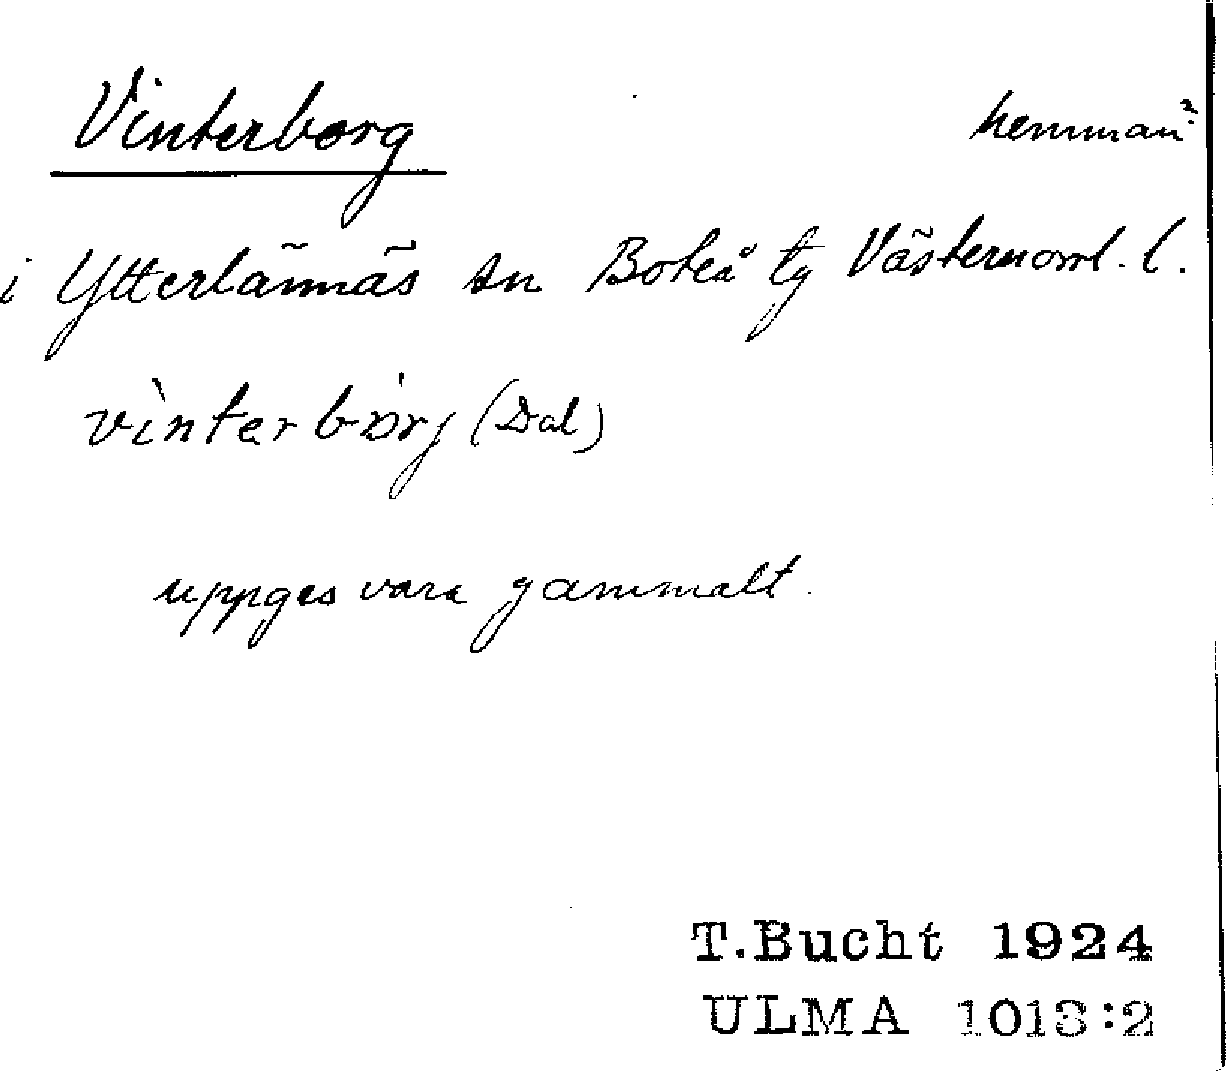 Vinterborg hemman?
i Ytterlännäs sn Boteå tg Västernorrl. l.
vìnterbòrj (Dal)
uppges vara gammalt.
T.Bucht 1924
ULMA 1018:2